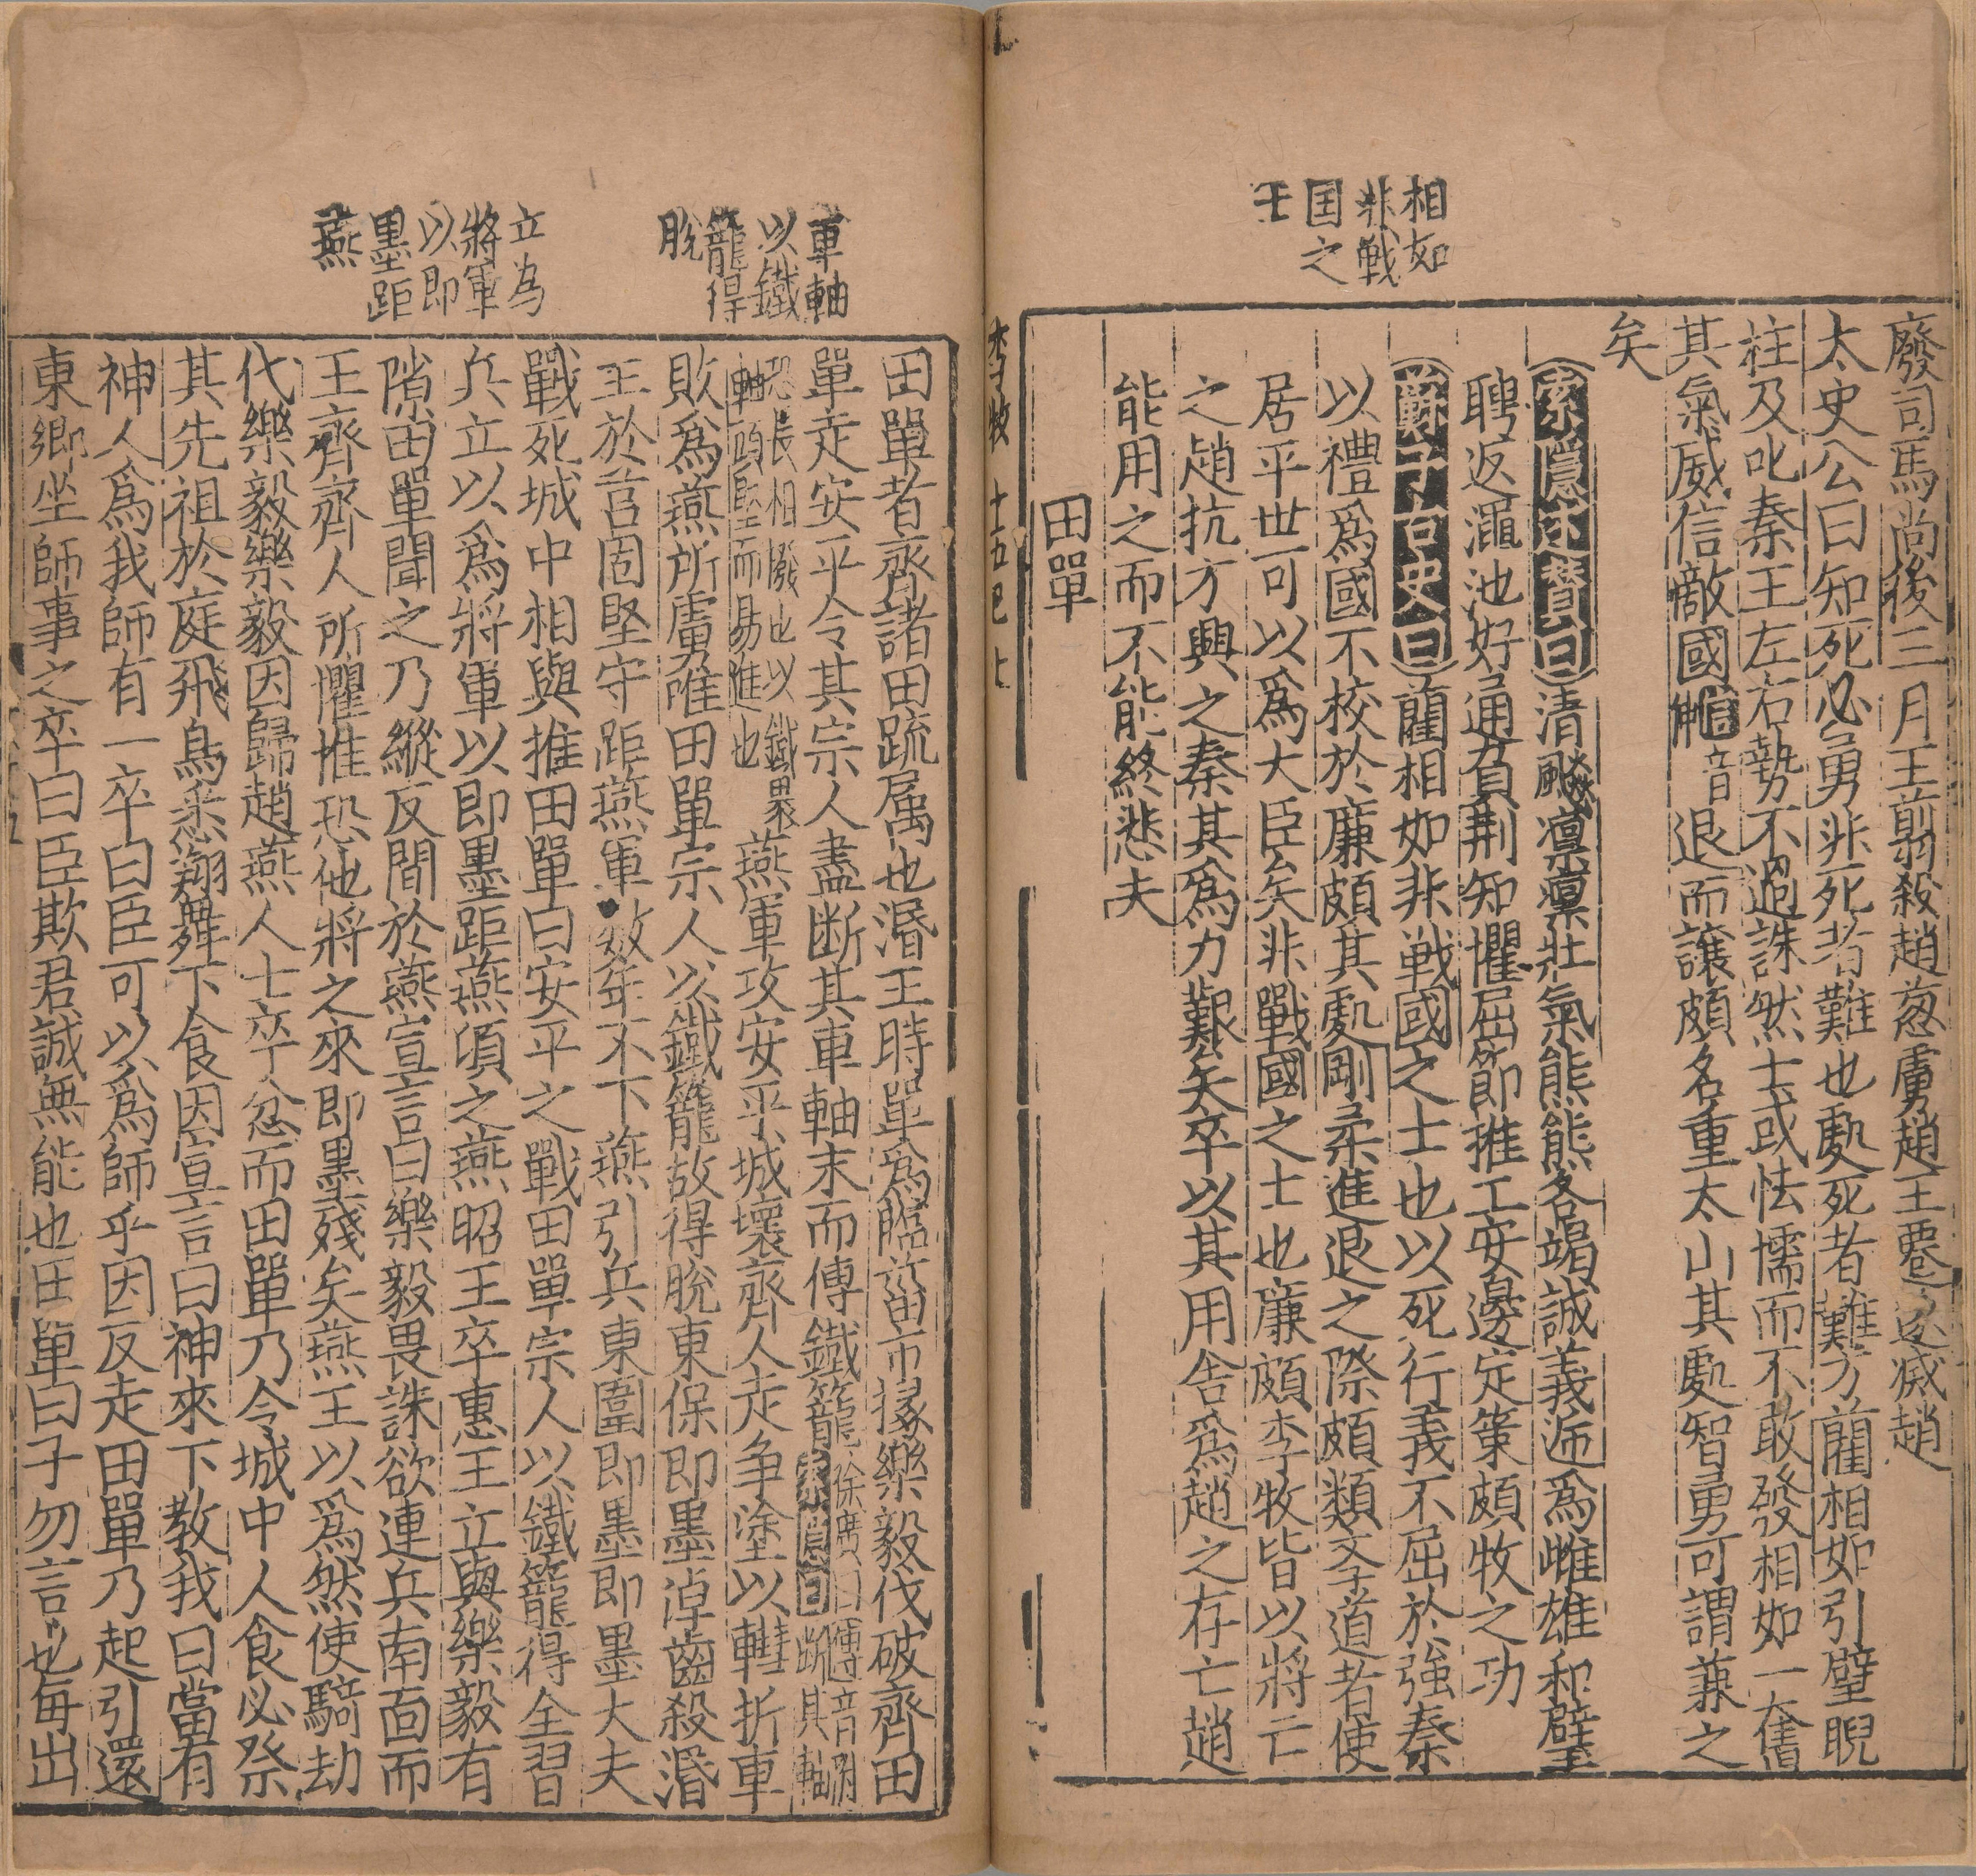 相如
非戦
国之
士
廢司馬尚後三月王翦殺趙葱虜趙王遷遂滅趙
太史公曰知死必勇非死者難也處死者難方藺相如引璧睨
柱及叱秦王左右勢不過誅然士或怯懦而不敢發相如一奮
其氣威信敵國音退而讓頗名重太山其處智勇可謂兼之
矣
索隱述贊曰清飈凛凛壯氣熊熊各竭誠義逓為雌雄和璧
聘返澠池好通負荆知懼屈節推工安邊定策頗牧之功
蘇子古史曰藺相如非戦國之士也以死行義不屈於強秦
以禮爲國不校於廉頗其處剛柔進退之際頗類孝道者使
居平世可以爲大臣矣非戰國之士也廉頗李牧皆以將亡
之趙抗方興之秦其爲力艱矣卒以其用舍爲趙之存亡趙
能用之而不能終悲夫
田單
李牧 十五巳 七
車軸
以鐵
籠得
脫
立為
將軍
以即
墨距
燕
田單者齊諸田疏属也湣王時單爲臨菑市掾樂毅伐破齊田
單走安平令其宗人盡断其車軸末而傅鐵籠徐廣曰傅音附索隱曰断其軸
恐長相撥也以鐵裹軸頭堅而易進也燕軍攻安平城壞齊人走争塗以轊折車
敗爲燕所虜唯田單宗人以鐵籠故得脫東保即墨淖齒殺湣
王於莒固堅守距燕軍数年不下燕引兵東圍即墨即墨大夫
戰死城中相與推田單曰安平之戰田單宗人以鐵籠得全習
兵立以爲將軍以即墨距燕頃之燕昭王卒惠王立與樂毅有
隙田單聞之乃縱反間於燕宣言曰樂毅畏誅欲連兵南面而
王齊齊人所懼惟恐他將之來即墨殘矣燕王以爲然使騎劫
代樂毅樂毅因歸趙燕人士卒忿而田單乃令城中人食必祭
其先祖於庭飛鳥悉翔舞下食因宣言曰神來下教我曰當有
神人爲我師有一卒曰臣可以爲師乎因反走田單乃起引還
東鄉坐師事之卒曰臣欺君誠無能也田單曰子勿言也每出